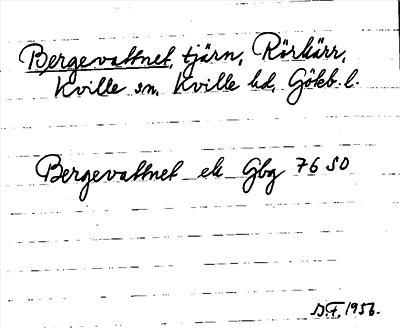 Bergevattnet, tjärn, Rörkärr,
Kville sn, Kville hd, Göteb. l.
Bergevattnet ek Gbg 76 SO
D.F. 1956.